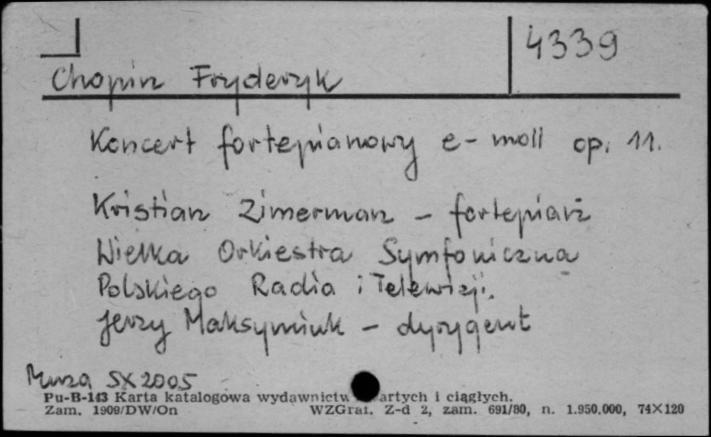 4339
Chopin Fryderyk
Koncert fortepianowy e-moll op. 11.
Kristian Zimerman – fortepian
Wielka Orkiestra Symfoniczna
Polskiego Radia i Telewizji.
Jerzy Maksymiuk – dyrygent
Muza SX2005
Pu-B-143 Karta katalogowa wydawnictw artych i ciągłych.
Zam. 1909/DW/On WZGraf. Z-d 2, zam. 691/80, n. 1.950.000, 74X120